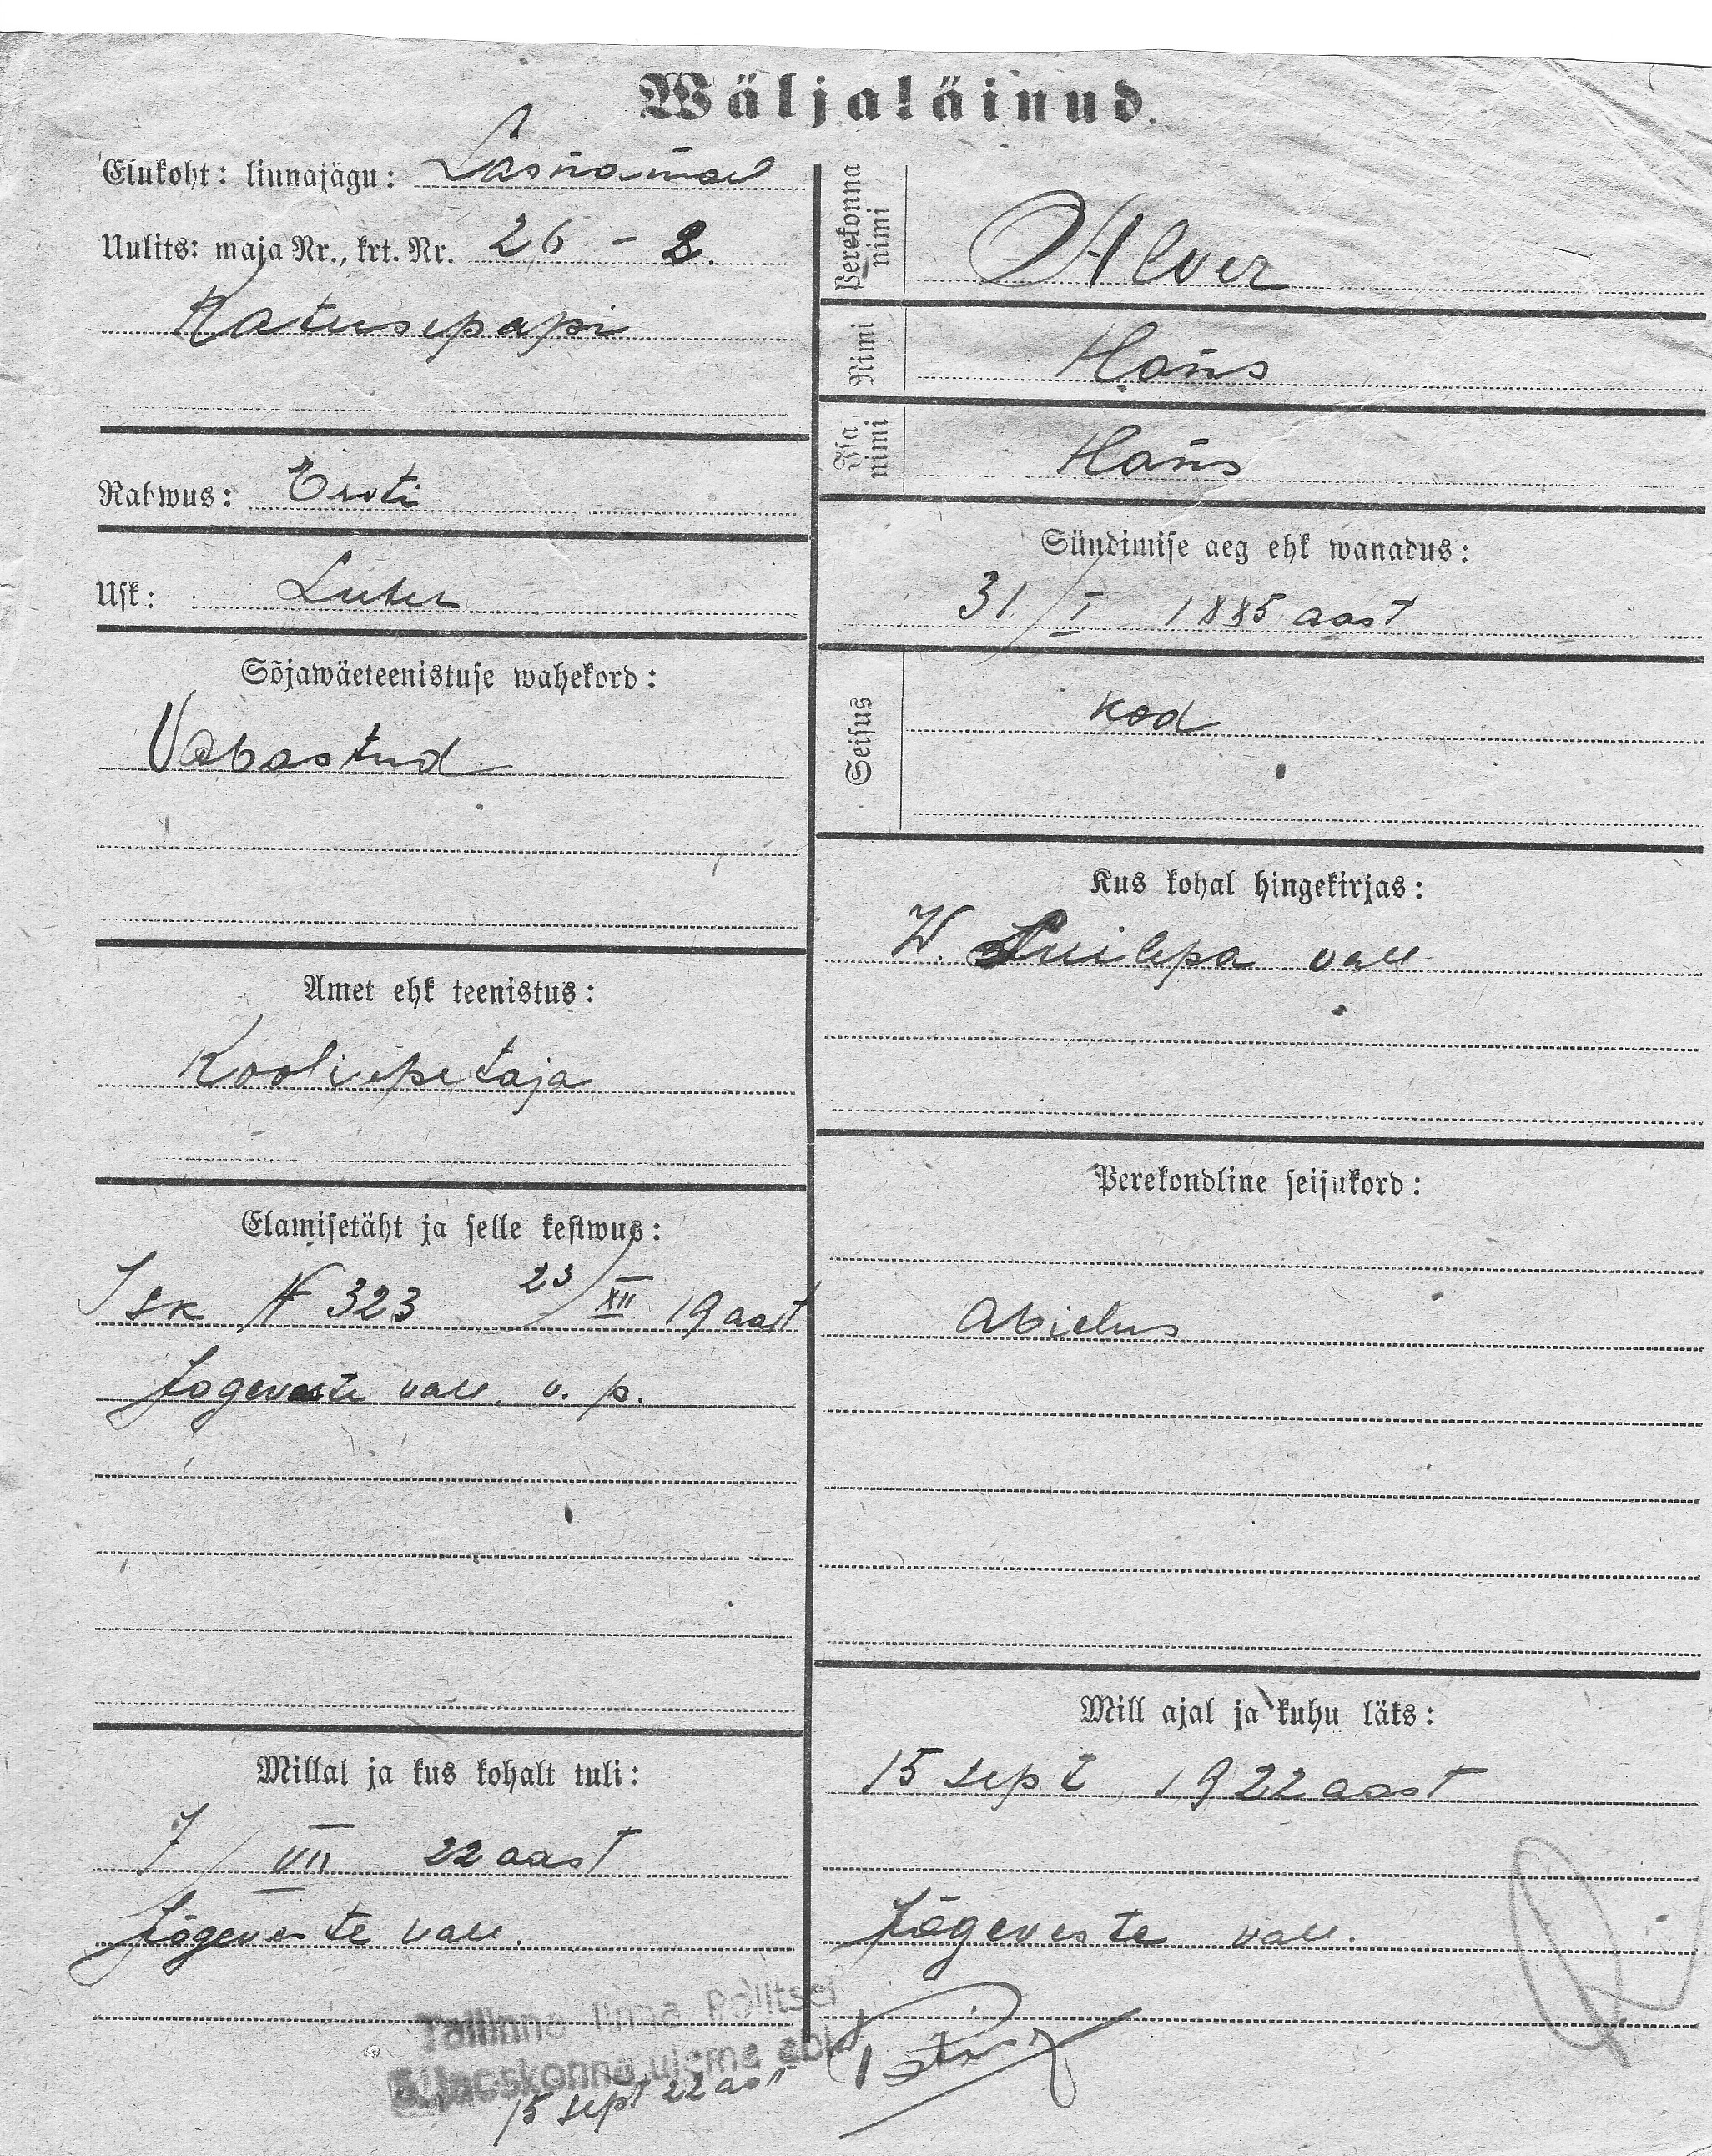 Wäljaläinud.
Elukoht: linnajägu: Lasnamäel
Uulits: maja Nr., krt. Nr. 26 - 2.
Katusepapi
Rahwus: Eesti
Usk: Luter
Sõjawäeteenistuse wahekord:
Vabastud
Amet ehk teenistus:
Kooliõpetaja
Elamisetäht ja selle kestwus:
Isk № 323 23/XII 19 aast
Jõgeveste vall. v. p.
Millal ja kus kohalt tuli:
7/VII 22 aast
Jõgeveste vall.
Perekonna nimi Alver
Nimi Hans
Isa nimi Hans
Sündimise aeg ehk wanadus:
31/I 1885 aast
Seisus kod
Kus kohal hingekirjas:
W. vall
Perekondline seisukord:
Abielus
Mill ajal ja kuhu läks:
15 sept 1922 aast
Jõgeveste vall.
Tallinna linna Politsei
5. jaoskonna ülema abi
15 sept 22 aast